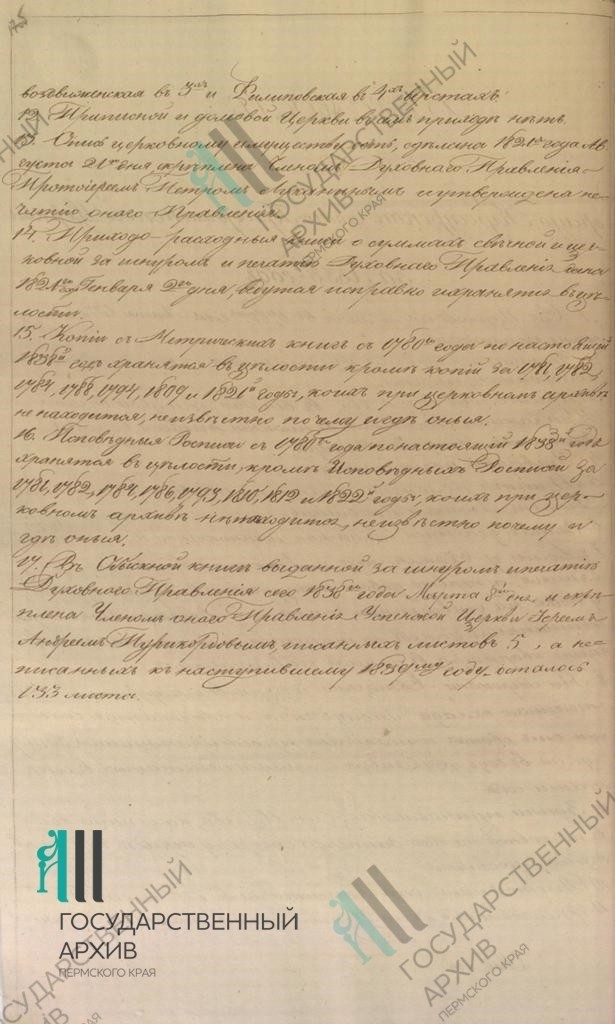 75
воздвиженская въ 3хъ и Филиповская въ 4хъ верстахъ.
12. Приписной и домовой Церкви в семъ приходѣ нѣтъ.
13. Опись церковному имуществу есть, сдѣлана 1821го года Ав
густа 21го дня скрѣплена Членомъ Духовнаго Правленія
Протоіереемъ Петромъ и утверждена пе
чатію онаго Правленія.
14. Приходо-расходныя книги о суммахъ свѣчной и цер
ковной за шнуромъ и печатію Духовнаго Правленія даны
1821го Генваря 2го дня, ведутся исправно и хранятся в цѣ
лости.
15. Копіи съ Метрическихъ книгъ съ 1780го года по настоящій
1838й годъ хранятся в цѣлости кромѣ копій за 1781, 1782,
1784, 1788, 1794, 1809 и 1821й годы, коихъ при церковномъ архивѣ
не находится, неизвѣстно почему и гдѣ оныя.
16. Исповѣдныя Росписи съ 1780го года по настоящій 1838й годъ
хранятся в цѣлости, кромѣ Исповѣдныхъ Росписей за
1781, 1782, 1784, 1786, 1793, 1810, 1812 и 1822й годы, коихъ при цер
ковномъ архивѣ не находится, неизвѣстно почему и
гдѣ оныя.
17. Въ Обыскной книгѣ выданной за шнуромъ и печатію
Духовнаго Правленія сего 1838го года Марта 8го дня и скрѣ
плена Членомъ онаго Правленія Успенской Церкви Іереемъ
Андреемъ писанныхъ листовъ 5, а не
писанныхъ къ наступившему 1839му году осталось
133 листа.
ГОСУДАРСТВЕННЫЙ
АРХИВ
ПЕРМСКОГО КРАЯ